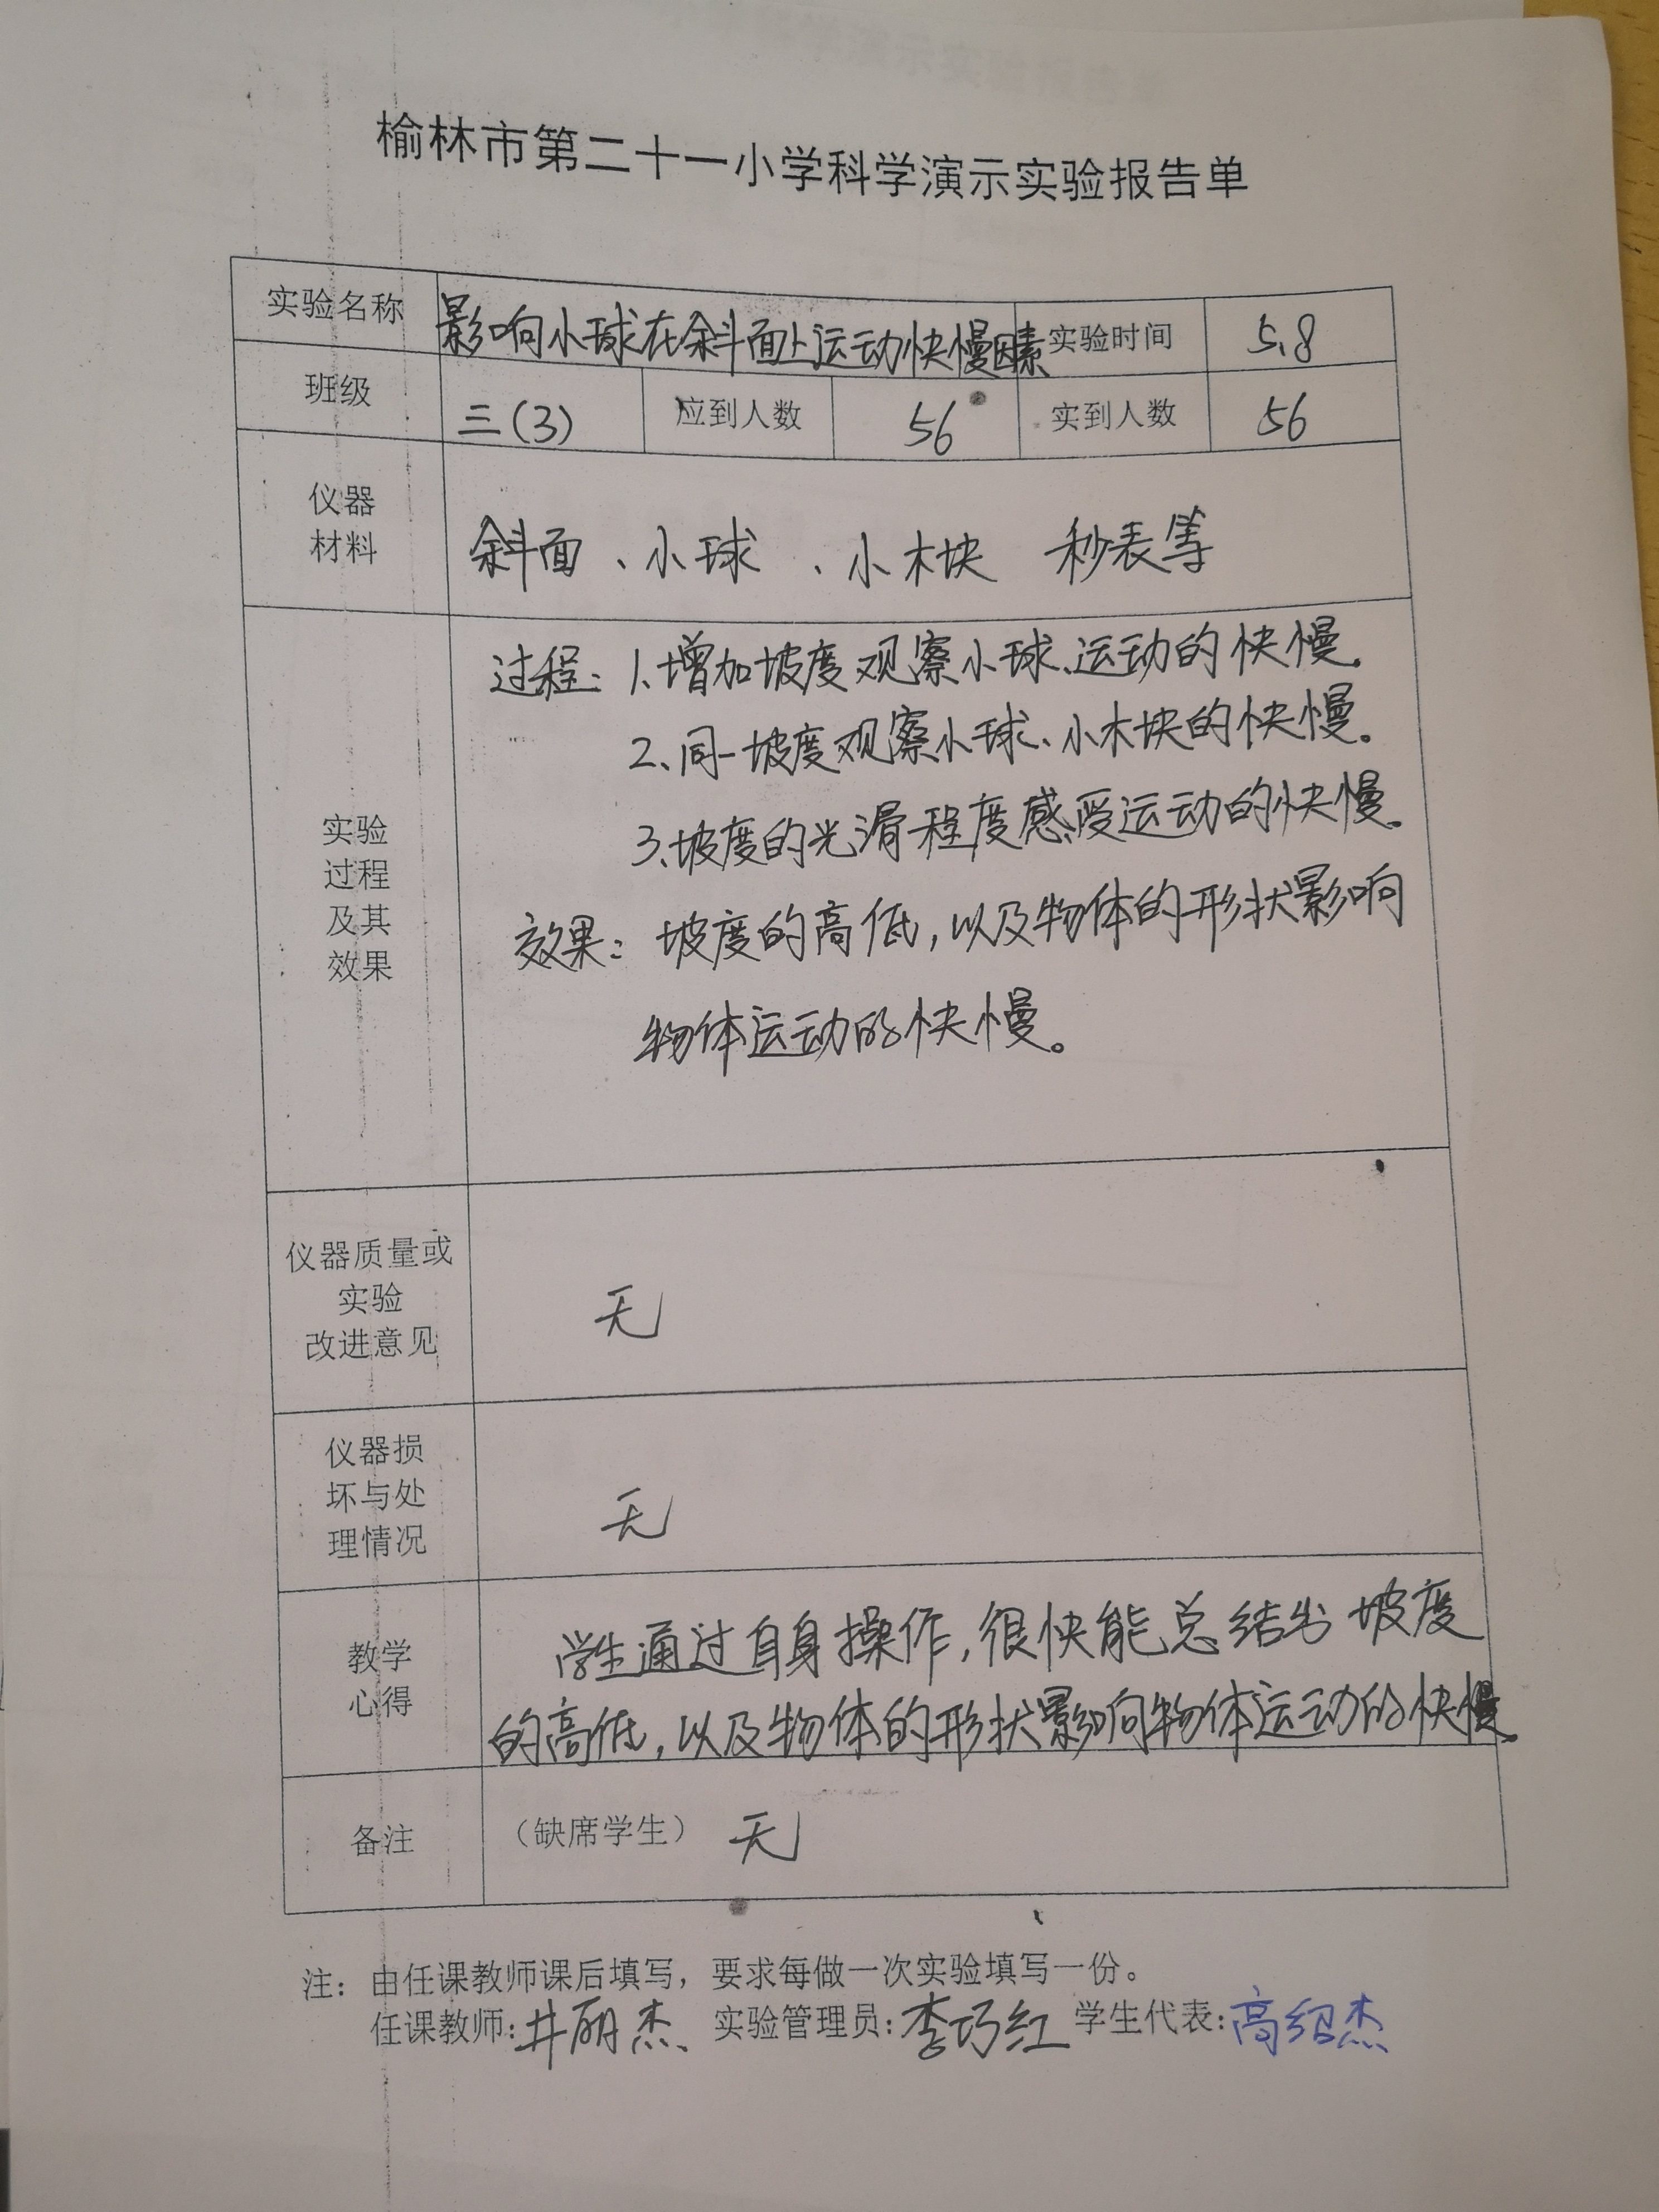 榆林市第二十一小学科学演示实验报告单
实验名称 影响小球在斜面上运动快慢因素 实验时间 5.8
班级 三(3) 应到人数 56 实到人数 56
仪器
材料
斜面、小球、小木块 秒表等
实验
过程
及其
效果
过程:1、增加坡度观察小球、运动的快慢。
2、同一坡度观察小球、小木块的快慢。
3、坡度的光滑程度感受运动的快慢。
效果:坡度的高低,以及物体的形状影响
物体运动的快慢。
仪器质量或
实验
改进意见
无
仪器损
坏与处
理情况
无
教学
心得
学生通过自身操作,很快能总结出坡度
的高低,以及物体的形状影响物体运动的快慢
备注 (缺席学生) 无
注:由任课教师课后填写,要求每做一次实验填写一份。
任课教师:井丽杰 实验管理员:李巧红 学生代表:高绍杰